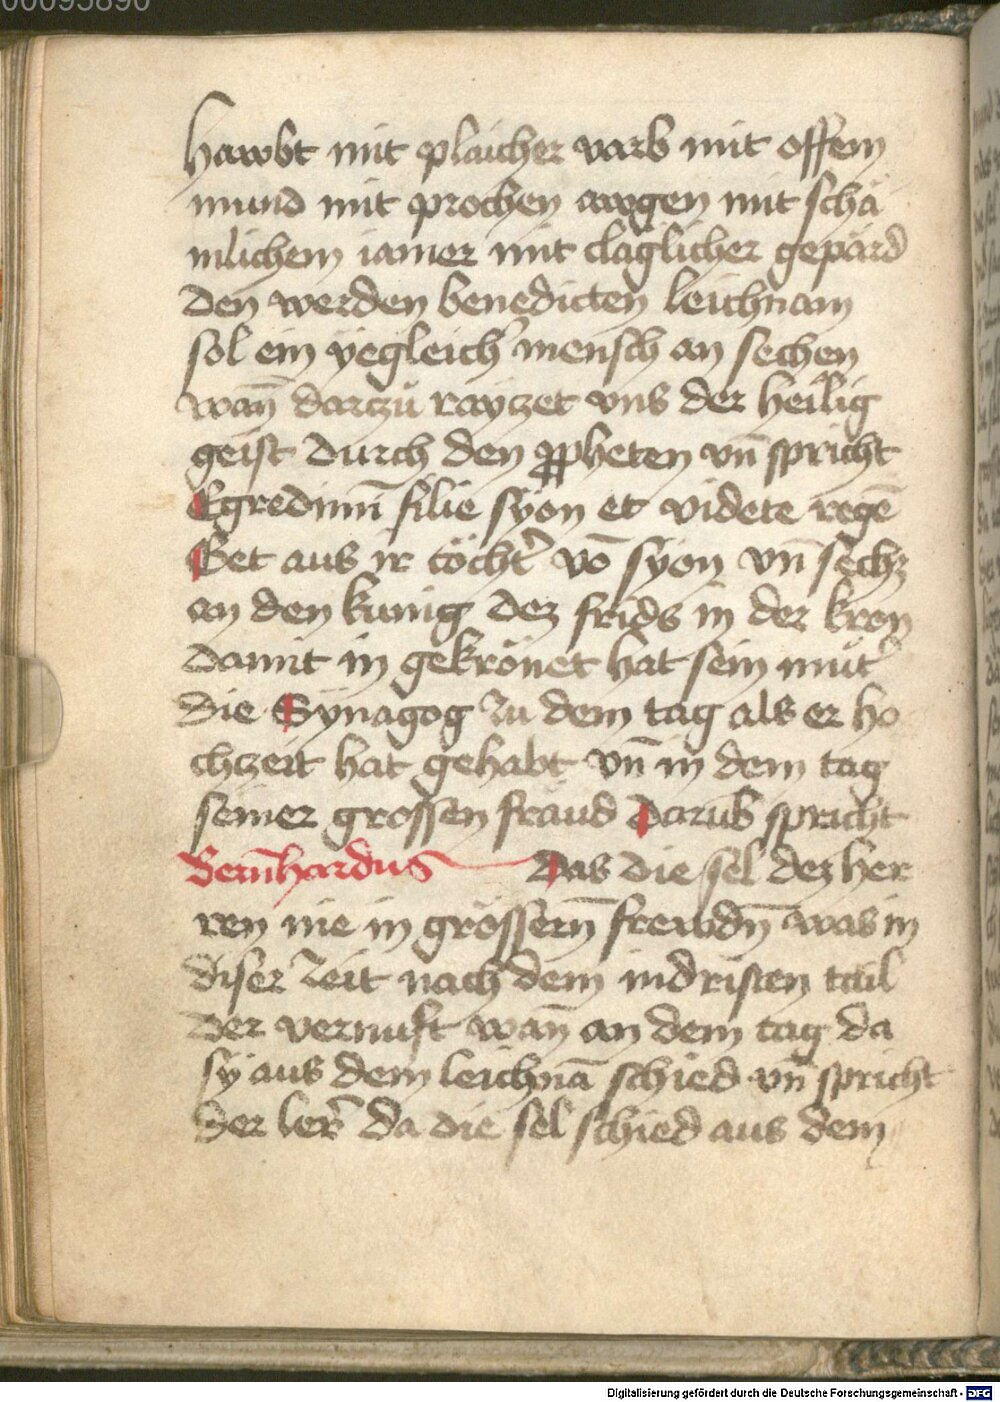 00095890
hawbt mit plaicher varb mit offem
mund mit prochen awgen mit schä
mlichem iamer mit cläglicher gepärd
den werden benedicten leichnam
sol ein yegleich mensch an sechen
wan̄ darczů rayczet vns der heilig
geist durch den ꝓpheten vn̄ spricht
Egredimi̅ filie syon et videte regē
Get aus ir töcht᷑ vō syon vn̄ sechz
an den kunig dez frids in der kron
damit in gekrönet hat sein mut᷑
die Synagog zu dem tag als er ho
chzeit hat gehabt vn̄ in dem tag
seiner grossen fräud Darūb spricht
Bern̄hardus Das die sel dez her
ren nie in grössern̄ frewdn̄ was in
diser zeit nach dem indristen tail
der vernuft wan̄ an dem tag da
sy aus dem leichnā schied vn̄ spricht
der ler᷑ da die sel schied aus dem
Digitalisierung gefördert durch die Deutsche Forschungsgemeinschaft - DFG